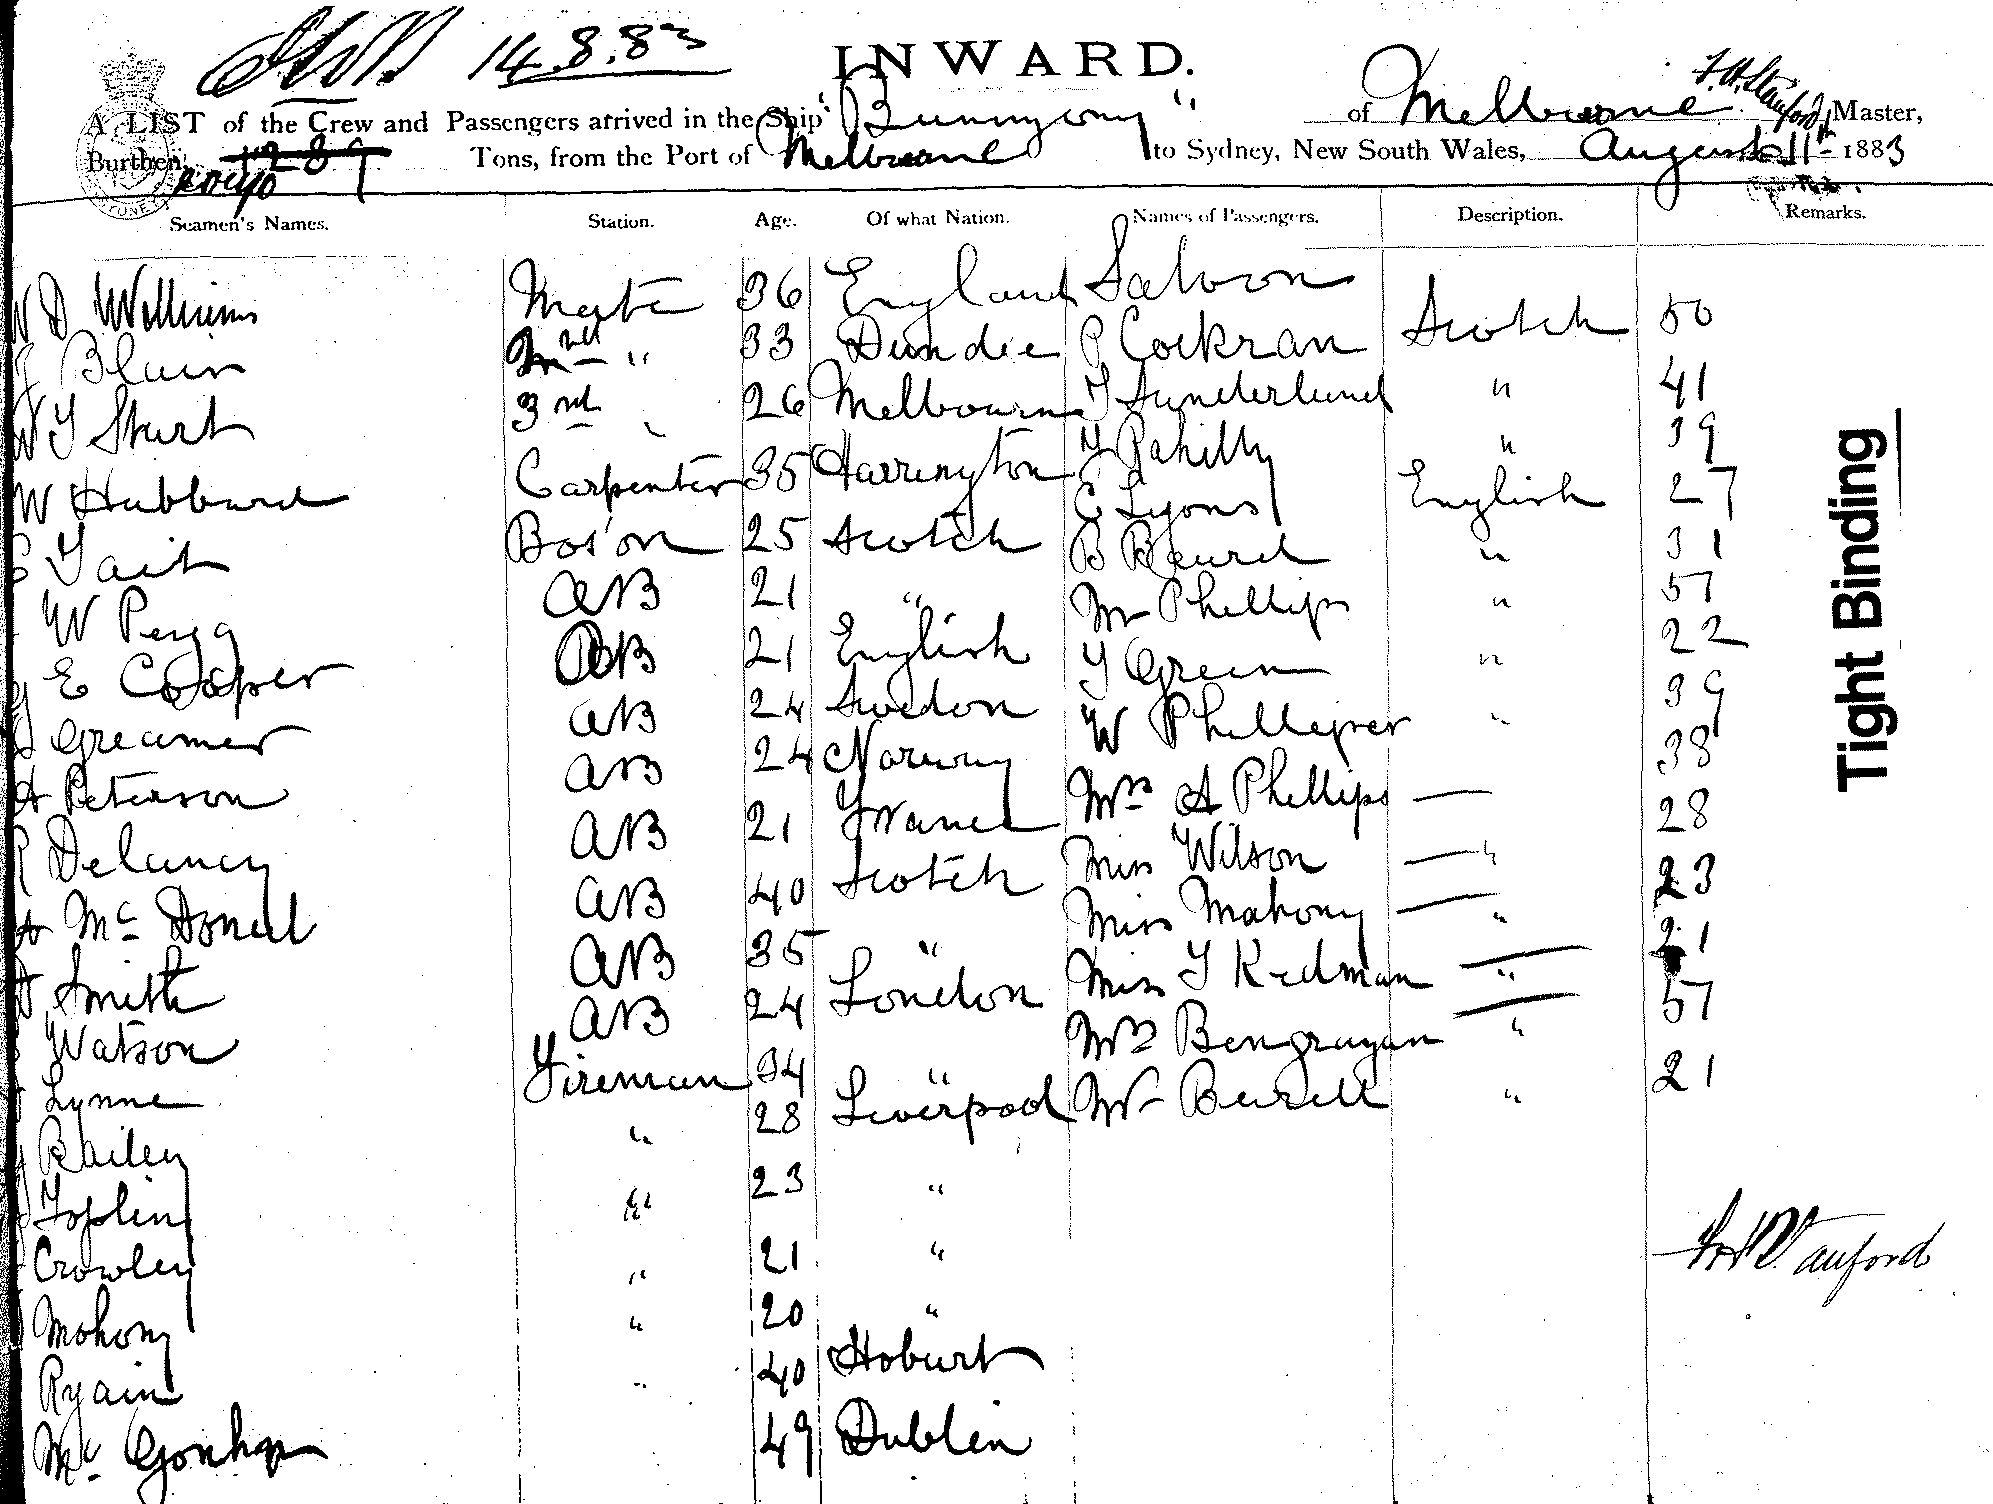 14.8.83
INWARD.
A LIST of the Crew and Passengers arrived in the Ship "Bunnyong" of Melbourne F. H. Stanford, Master,
Burthen, Tons, from the Port of Melbourne to Sydney, New South Wales, August 11th 1883
Seamen's Names. Station. Age. Of what Nation. Names of Passengers. Description. Remarks.
W D Williams Mate 36 England Saloon
J Blain 2nd " 33 Dundee P Cockran Scotch 50
W T Sturt 3rd " 26 Melbourne T Sunderland " 41
W Hubbard Carpenter 35 Harrington T Pahilly " 39
Tait Bos'on 25 Scotch E Lyons English 27
W Pegg AB 21 " B Beurd " 31
E Cooper AB 21 English Mr Phillips " 57
Greamer AB 24 Swedon T Green " 22
A Peterson AB 24 Norway W Phillipser " 39
R Delaney AB 21 France Mrs A Phillips — 38
A Mc Doneil AB 40 Scotch Miss Wilson — " 28
Smith AB 35 " Miss Mahony — " 23
Watson AB 24 London Miss T Redman — " 21
Lynne Fireman 34 " Mrs Bengrayan — " 57
Bailey " 28 Liverpool Mr Burell " 21
Toplin " 23 "
Crowley " 21 "
Mohony " 20 "
Ryain " 40 Hobart
Mc 49 Dublin
Stanford
Tight Binding